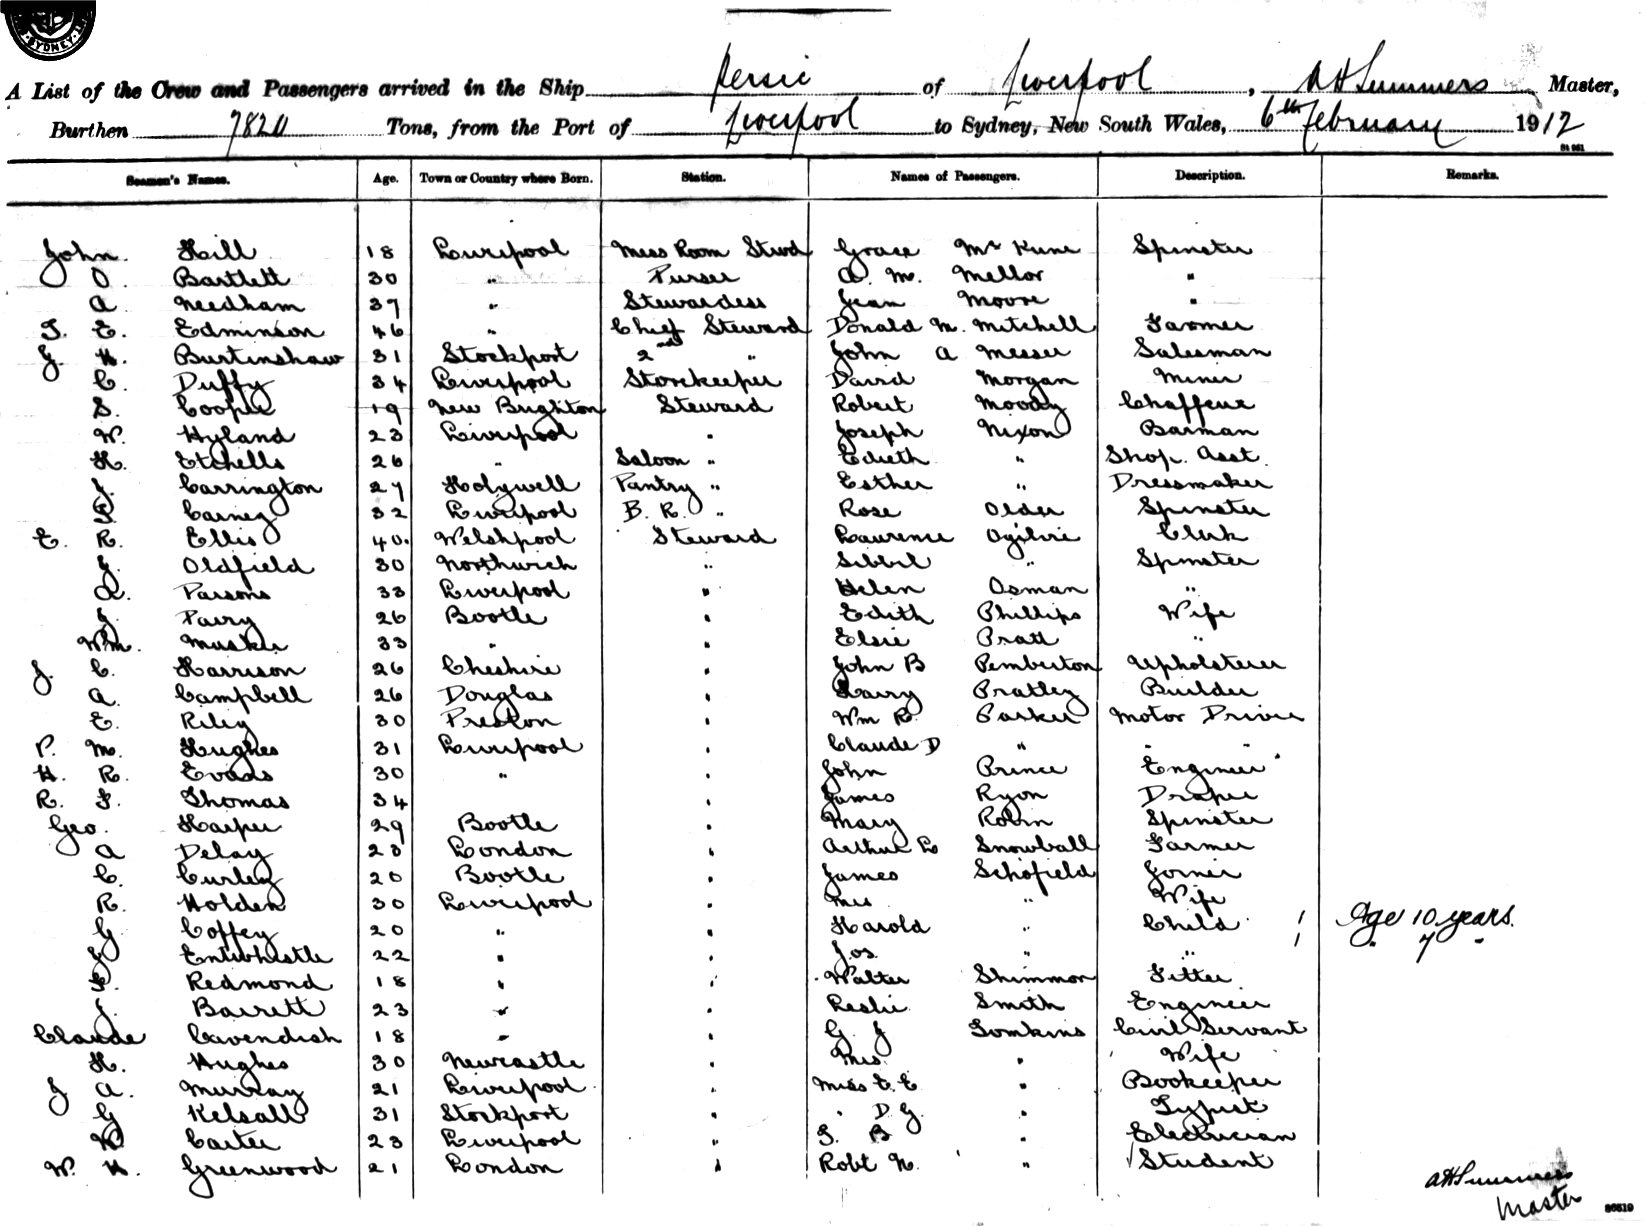 SYDNEY
A List of the Crew and Passengers arrived in the Ship Persic of Liverpool, A H Summers Master,
Burthen 7820 Tons, from the Port of Liverpool to Sydney, New South Wales, 6th February 1912
Seamen's Names. Age. Town or Country where Born. Station. Names of Passengers. Description. Remarks.
John Hill 18 Liverpool Mess Room Stwd Grace McKune Spinster
O. Bartlett 30 " Purser A. M. Mellor "
A. Needham 37 " Stewardess Jean Moore "
T. E. Edminson 46 " Chief Steward Donald M. Mitchell Farmer
J. H. Burtinshaw 31 Stockport 2nd " John A Messer Salesman
C. Duffy 34 Liverpool Storekeeper David Morgan Miner
S. Cooper 19 New Brighton Steward Robert Moody Chaffeur
W. Hyland 23 Liverpool " Joseph Nixon Barman
H. Etchells 26 " Saloon " Edieth " Shop. Asst.
J. Carrington 27 Holywell Pantry " Esther " Dressmaker
Carney 32 Liverpool B. R. " Rose Older Spinster
E. R. Ellis 40. Welshpool Steward Laurence Ogilvie Clerk
J. Oldfield 30 Northwich " Sibbil " Spinster
A. Parsons 33 Liverpool " Helen Osman "
J. Parry 26 Bootle " Edith Phillips Wife
Wm. Musker 33 " " Elsie Pratt "
J. C. Harrison 26 Cheshire " John B Pemberton Upholsterer
A. Campbell 26 Douglas " Harry Pratley Builder
E. Riley 30 Preston " Wm R. Parker Motor Driver
P. M. Hughes 31 Liverpool " Claude D " " "
H. R. Evans 30 " " John Prince Engineer
R. F. Thomas 34 " James Ryon Draper
Geo. Harper 29 Bootle " Mary Robin Spinster
A Delay 23 London " Arthur L Snowball Farmer
C. Curley 20 Bootle " James Schofield Joiner
R. Holden 30 Liverpool " Mrs " Wife
G Coffey 20 " " Harold " Child / Age 10 years.
J Entwhistle 22 " " Jos " " / " 7 "
Redmond 18 " " Walter Shimmon Fitter
J. Barrett 23 " " Leslie Smith Engineer
Claude Cavendish 18 " " G. J Tomkins Civil Servant
H. Hughes 30 Newcastle " Mrs. " Wife
J A. Murray 21 Liverpool " Miss E. E " Bookeeper
G Kelsall 31 Stockport " " D G. " Typist
W Carter 23 Liverpool " T. B " Electrician
W. H. Greenwood 21 London " Robt N. " Student
A H Summers
Master